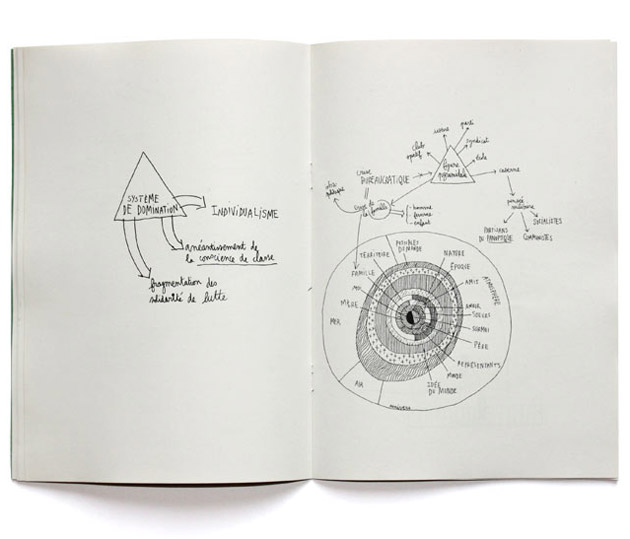 SYSTÈME
DE DOMINATION
INDIVIDUALISME
anéantissement de
la conscience de classe
fragmentation des
solidarité de lutte
usine
parti
syndicat
école
club
sportif
figure
pyramidale
caserne
BUREAUCRATIQUE
famille
- homme
- femme
- enfant
pensée
SOCIALISTES
PARTISANS
DU PANOPTIQUE
COMMUNISTES
DU MONDE
TERRITOIRE
NATURE
FAMILLE
ÉPOQUE
ATMOSPHÈRE
AMIS
MOI
MÈRE
MER
AMOUR
SOCLES
PÈRE
REPRÉSENTANTS
MONDE
IDÉE
DU MONDE
AIR
UNIVERS